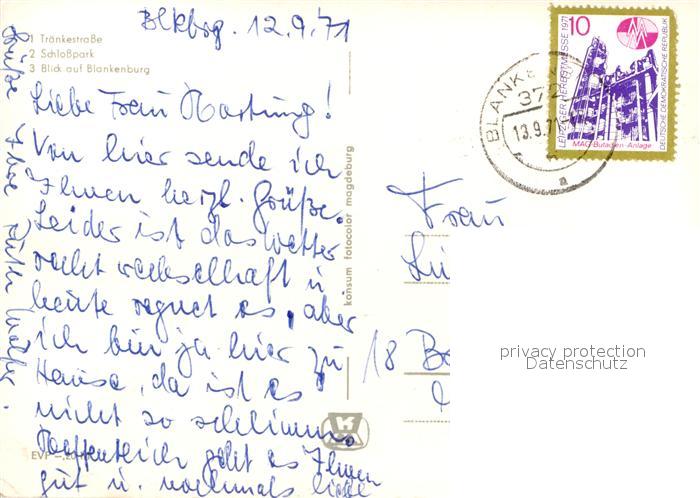 Blkbrg. 12.9.71
1 Tränkestraße
2 Schloßpark
3 Blick auf Blankenburg
Liebe Frau Hartung!
Von hier sende ich
Ihnen herzl. Grüße.
Leider ist das Wetter
recht wechselhaft u.
heute regnet es, aber
ich bin ja hier zu
Hause, da ist es
nicht so schlimm.
Hoffentlich geht es Ihnen
gut u. nochmals liebe
Grüße Ihre Ruth
EVP –,20
konsum fotocolor magdeburg
10
LEIPZIGER HERBSTMESSE 1971
DEUTSCHE DEMOKRATISCHE REPUBLIK
MAG-Butadien-Anlage
BLANKE
372
13.9.71
a
Frau
18 Be
privacy protection
Datenschutz